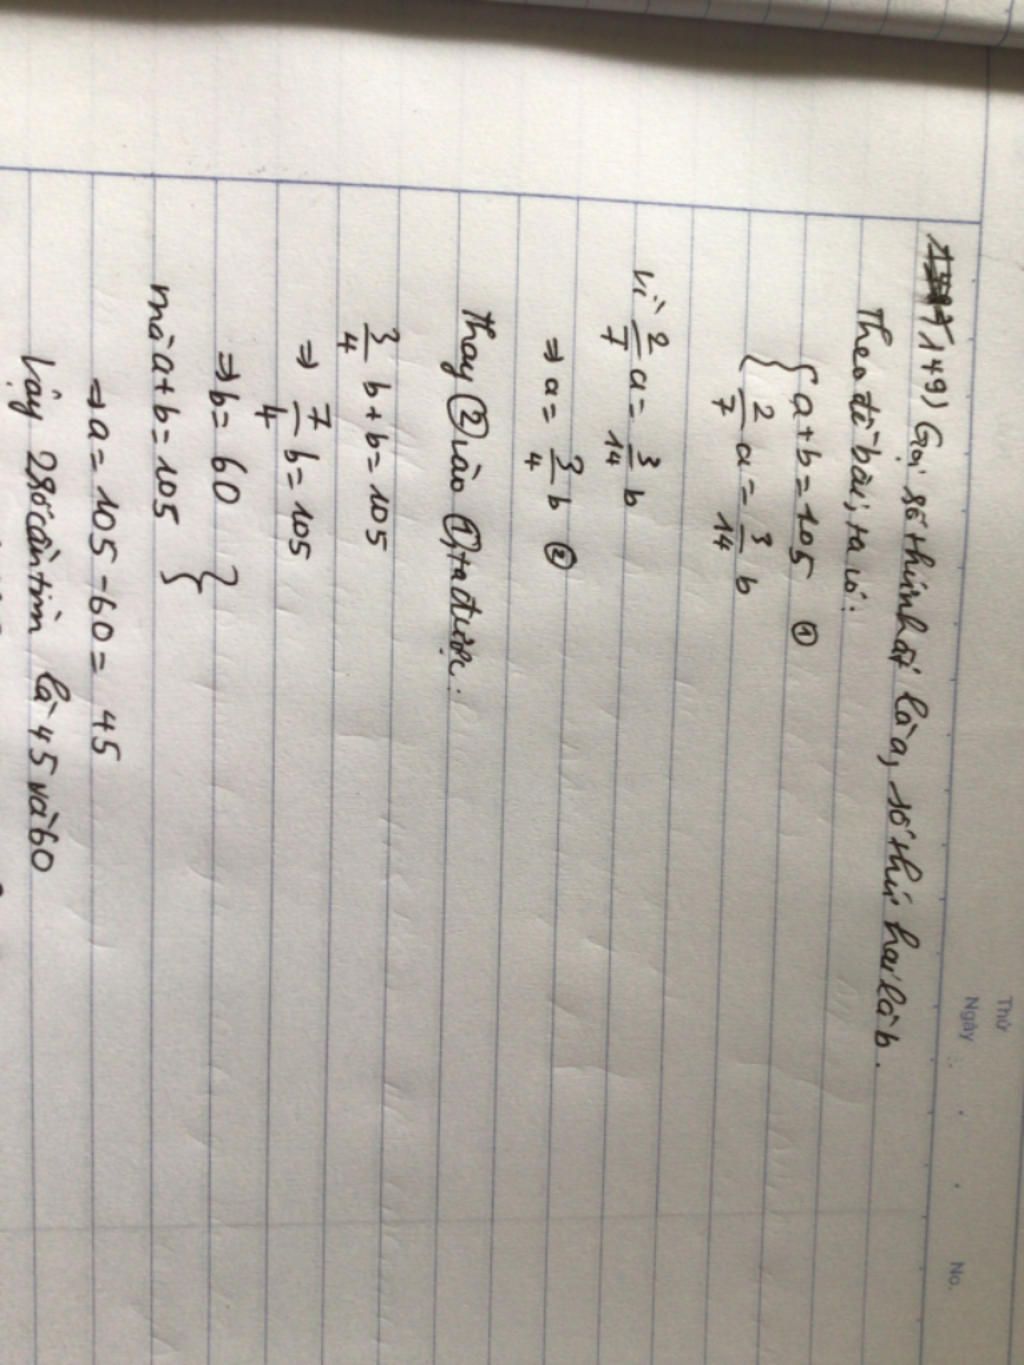 Thứ
Ngày
No.
149) Gọi số thứ nhất là a, số thứ hai là b.
Theo đề bài, ta có:
{ a + b = 105 ①
{ 2/7 a = 3/14 b
Vì 2/7 a = 3/14 b
⇒ a = 3/4 b ②
Thay ② vào ①, ta được:
3/4 b + b = 105
⇒ 7/4 b = 105
⇒ b = 60 }
mà a + b = 105 }
⇒ a = 105 - 60 = 45
Vậy 2 số cần tìm là 45 và 60